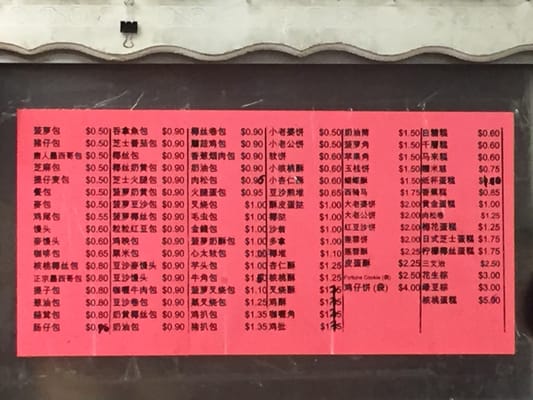 菠萝包 $0.50
猪仔包 $0.50
唐人墨西哥包 $0.50
芝麻包 $0.50
提仔麦包 $0.50
餐包 $0.50
麥包 $0.50
鸡尾包 $0.55
馒头 $0.60
麥馒头 $0.60
咖啡包 $0.65
核桃椰丝包 $0.80
正宗墨西哥包 $0.80
提子包 $0.80
葱油包 $0.80
腸仔包
吞拿魚包 $0.90
芝士番茄包 $0.90
椰丝包 $0.90
椰丝奶黄包 $0.90
芝士火腿包 $0.90
菠萝奶黄包 $0.90
菠萝豆沙包 $0.90
菠萝椰丝包 $0.90
粒粒红豆包 $0.90
鸡晚包 $0.90
粟米包 $0.90
豆沙餐包 $0.90
豆沙馒头 $0.90
咖喱牛肉包 $0.90
豆沙卷包 $0.90
奶黄椰丝包 $0.90
奶油包 $0.90
椰丝卷包 $0.90
蘑菇鸡包 $0.90
香葱烟肉包 $0.90
奶油包 $0.90
肉松包
火腿蛋包 $0.95
叉烧包 $1.00
毛虫包 $1.00
金錢包 $1.00
菠萝奶酥包 $1.00
心太软包 $1.00
芋头包 $1.00
牛角包
菠萝叉烧包 $1.10
蒸叉烧包 $1.25
鸡扒包 $1.35
咖喱包 $1.35
猪扒包 $1.35
小老婆饼 $0.50
小老公饼 $0.50
软饼 $0.60
小核桃酥 $0.60
小杏仁酥 $0.60
豆沙煎堆 $0.65
酥皮蛋挞 $1.00
椰挞 $1.00
沙翁 $1.00
多拿 $1.00
椰堆 $1.10
杏仁酥 $1.25
核桃酥 $1.25
叉烧酥
鸡酥
咖喱角
鸡批
奶油筒 $1.50
菠萝角 $1.50
苹果角 $1.50
玉桂饼 $1.50
蝴蝶酥 $1.50
西琦马 $1.75
大老婆饼 $2.00
大老公饼 $2.00
红豆饼 $2.00
莲蓉饼 $2.00
黑蓉酥 $2.25
皮蛋酥 $2.25
Fortune Cookie (袋) $2.50
鸡仔饼 (袋) $4.00
白糖糕 $0.60
千層糕 $0.75
马来糕 $0.60
糯米糍 $0.75
纸杯蛋糕
香蕉糕 $0.85
黄金蛋糕 $1.00
肉松卷 $1.25
梅花蛋糕 $1.25
日式芝士蛋糕 $1.75
柠檬椰丝蛋糕 $1.75
三文治 $2.50
花生棕 $3.00
绿豆棕 $3.00
核桃蛋糕 $5.00